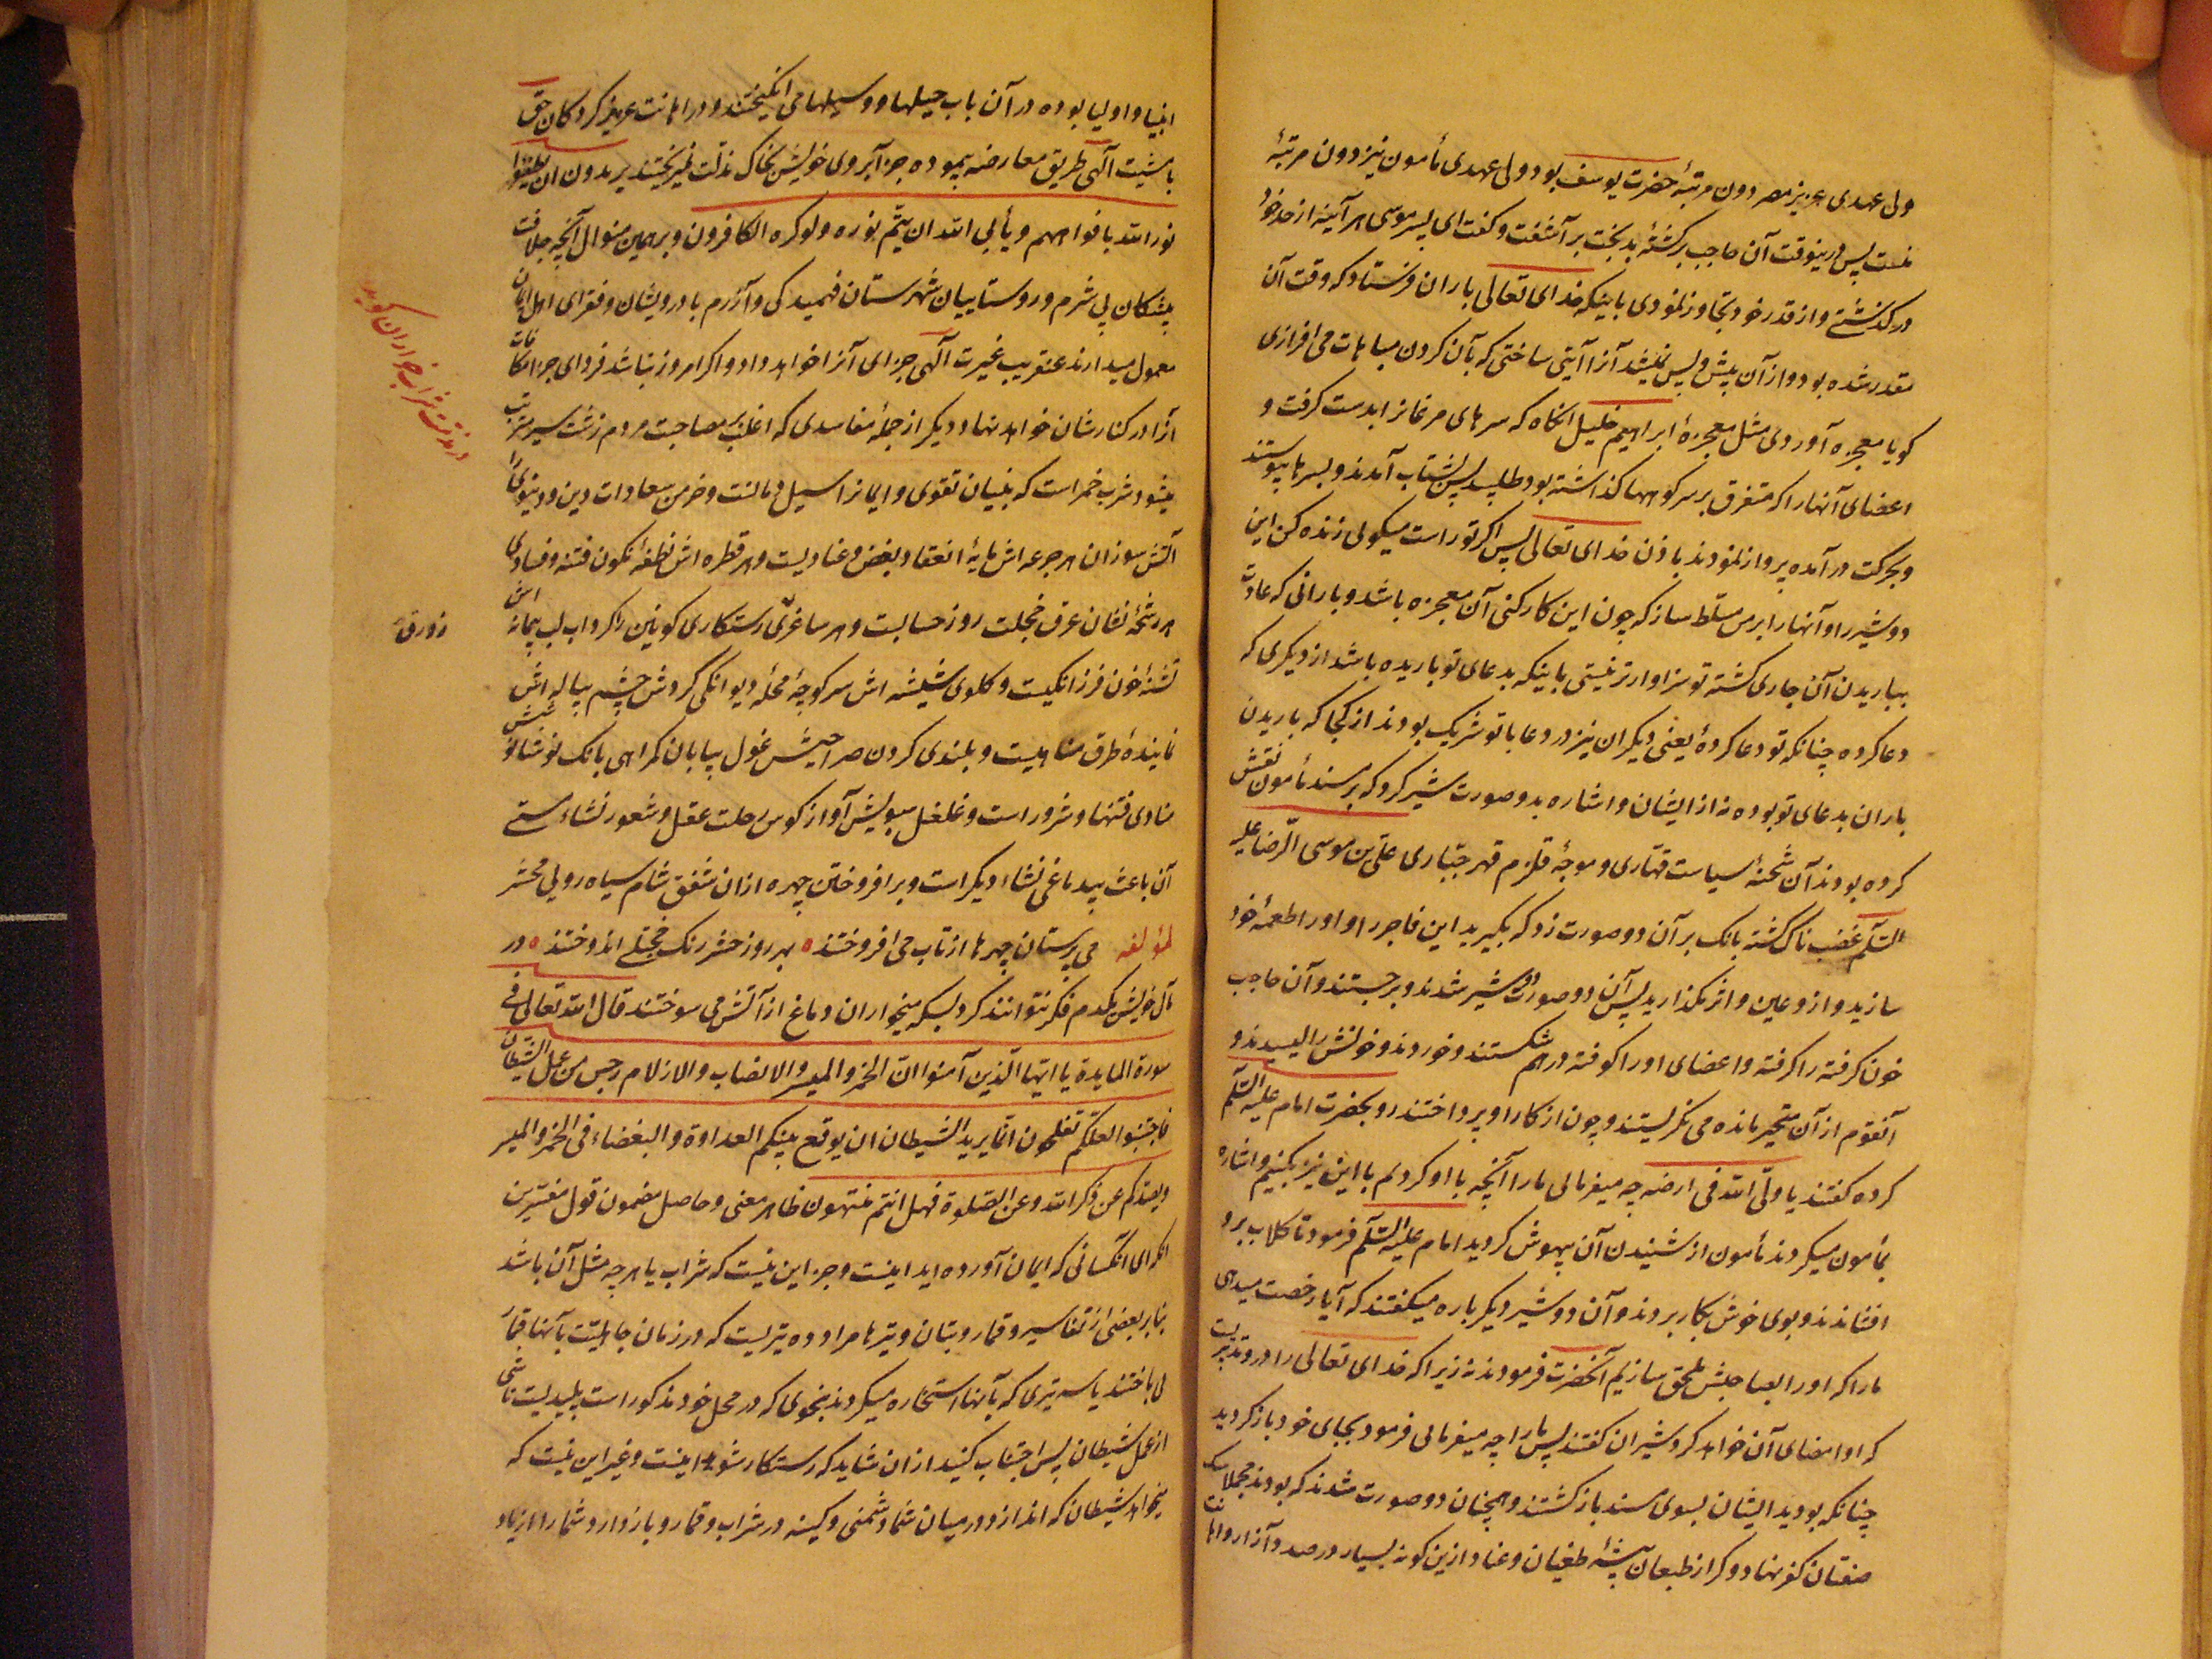 ولی عهدی عزیز مصر دون مرتبهٔ حضرت یوسف بود و ولی عهدی مأمون نیز دون مرتبهٔ
منست پس درینوقت آن حاجب برگشتهٔ بدبخت برآشفت و گفت ای پسر موسی هر آینه از حد خود
درگذشتی و از قدر خود تجاوز نمودی باینکه خدای تعالی باران فرستاد که وقت آن
مقدر شده بود و از آن پیش و پس نمیشد آنرا آیتی ساختی که بآن گردن مباهات می افرازی
گویا معجزه آوردی مثل معجزهٔ ابراهیم خلیل انگاه که سرهای مرغانرا بدست گرفت و
اعضای آنها را که متفرق بر سر کوهها گذاشته بود طلبید پس بشتاب آمدند و بسرها پیوستند
و بحرکت درآمده پرواز نمودند باذن خدای تعالی پس اگر تو راست میگوئی زنده کن این
دو شیر را و آنها را بر من مسلط ساز که چون این کار کنی آن معجزه باشد و بارانی که عادت
بباریدن آن جاری گشته تو سزاوارتر نیستی باینکه بدعای تو باریده باشد از دیگری که
دعا کرده چنانکه تو دعا کردهٔ یعنی دیگران نیز در دعا با تو شریک بودند از کجا که باریدن
باران بدعای تو بوده نه از ایشان و اشاره بدو صورت شیر کرد که بر مسند مأمون نقش
کرده بودند آن شحنهٔ سیاست قهاری و موجهٔ قلزم قهر جباری علی بن موسی الرضا علیه
السلم غضب ناک گشته بانک بر آن دو صورت زد که بگیرید این فاجر را و او را طعمهٔ خود
سازید و از و عین و اثر نگذارید پس آن دو صورت دو شیر شدند و برجستند و آن حاجب
خون گرفته را گرفته و اعضای او را کوفته در هم شکستند و خوردند و خونش را لیسیدند و
آنقوم از آن متحیر مانده می نگریستند و چون از کار او پرداختند رو بحضرت امام علیه السلم
کرده گفتند یا ولی الله فی ارضه چه میفرمائی ما را آنچه با او کردیم با این نیز بکنیم و اشاره
بمأمون میکردند مأمون از شنیدن آن بیهوش گردید امام علیه السلم فرمود تا گلاب برو
افشاندند و بوی خوش بکار بردند و آن دو شیر دیگر باره میگفتند که آیا رخصت میدهی
ما را که او را بصاحبش ملحق سازیم آنحضرت فرمودند نه زیرا که خدای تعالی را درو تدبیریست
که او امضای آن خواهد کرد شیران گفتند پس ما را چه میفرمائی فرمود بجای خود بازگردید
چنانکه بودید ایشان بسوی مسند بازگشتند و همچنان دو صورت شدند که بودند مجملا سگ
صفتان کفر نهاد و گراز طبعان پیشهٔ طغیان و عناد ازین گونه بسیار در صدد آزار و اهانت
انبیا و اولیا بوده در آن باب حیلها و وسیلها می انگیختند و در اهانت عزیز کردگان حق
با مشیت آلهی طریق معارضه پیموده جز آبروی خویش بخاک مذلت نمیریختند یریدون ان یطفئوا
نور الله بافواههم و یأبی الله ان یتم نوره ولو کره الکافرون و برهمین منوال آنچه جلافت
پیشگان بی شرم و روستاییان شهرستان فهمیدگی و آزرم با درویشان و فقرای اهل ایمان
معمول میدارند عنقریب غیرت آلهی جزای آنرا خواهد داد و اگر امروز نباشد فردای جزا مکافات
آنرا در کنارشان خواهد نهاد و دیگر از جملهٔ مفاسدی که اغلب بر مصاحبت مردم زشت سیر مترتب
میشود شرب خمر است که بنیان تقوی و ایمانرا سیل دمانست و خرمن سعادات دین و دنیوی را
آتش سوزان هر جرعه اش مایهٔ انعقاد بغض و عنادیست و هر قطره اش نطفهٔ تکون فتنه و فسادی
هر رشحهٔ نشان عرق خجلت روز حسابست و هر ساغری رستکاری کونین را گرداب لب پیمانه اش
تشنهٔ خون فرزانگیست و گلوی شیشه اش سر کوچهٔ محلهٔ دیوانگی گردش چشم پیاله اش
نمایندهٔ طرق مناهیست و بلندی گردن صراحیش غول بیابان گمراهی بانک نوشانوشش
منادی فتنها و شرور است و غلغل سبویش آواز کوس رحلت عقل و شعور نشاء مستی
آن باعث بیدماغی نشاء دیگر است و برافروختن چهره از ان شفق شام سیاه روئی محشر
لمؤلفه می پرستان چهرها از تاب می افروختند بهر روز حشر رنک خجلتی اندوختند در
مآل خویش یکدم فکر نتوانند کرد بسکه میخواران دماغ از آتش می سوختند قال الله تعالی فی
سورة المایدة یا ایها الذین آمنوا ان الخمر و المیسر و الانصاب و الازلام رجس من عمل الشیطان
فاجتنبوا لعلکم تفلحون انما یرید الشیطان ان یوقع بینکم العداوة و البغضاء فی الخمر و المیسر
و یصدکم عن ذکر الله و عن الصلوة فهل انتم منتهون ظاهر معنی و حاصل مضمون قول مفسرین
انکه ای انکسانی که ایمان آورده اید اینست و جز این نیست که شراب یا هر چه مثل آن باشد
بنابر بعضی از تفاسیر و قمار و بتان و تیرها مراد ده تیریست که در زمان جاهلیت بآنها قمار
می باختند یا سه تیری که بآنها استخاره میکردند بنحوی که در محل خود مذکور است پلیدیست ناشی
از عمل شیطان پس اجتناب کنید از ان شاید که رستکار شوید اینست و غیر این نیست که
میخواهد شیطان که اندازد در میان شما دشمنی و کینه در شراب و قمار و باز دارد شما را از یاد
در مذمت شراب خواران گوید
زورق